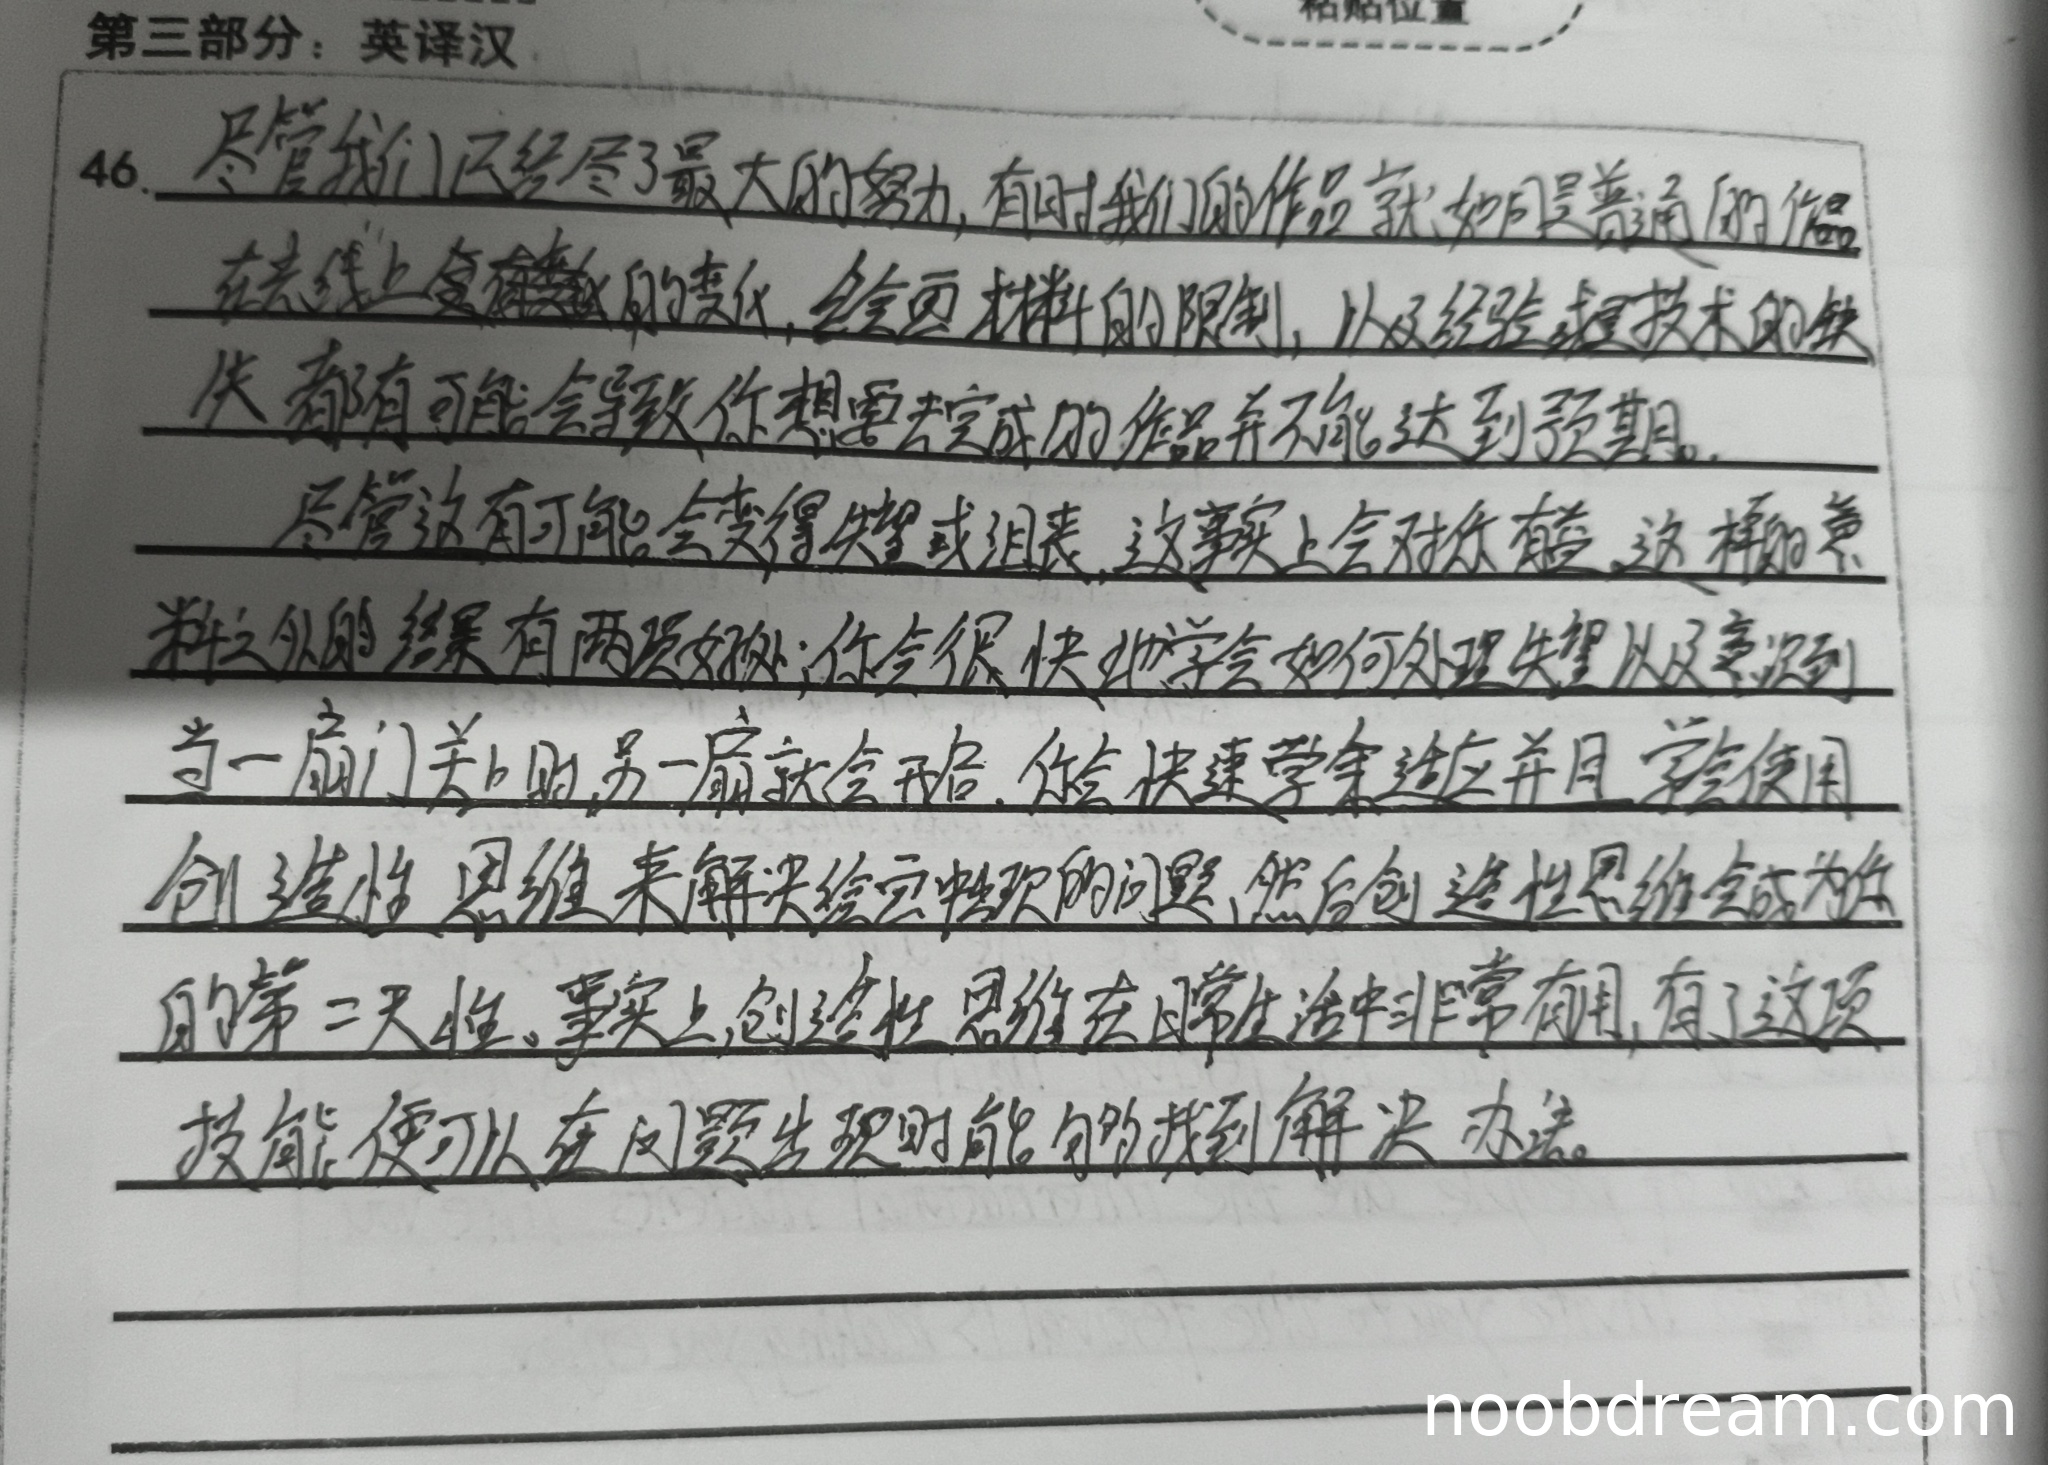 粘贴位置
第三部分：英译汉
46. 尽管我们已经尽了最大的努力，有时我们的作品就如同是普通的作品
在光线上的变化，绘画材料的限制，以及经验或是技术的缺
失都有可能会导致你想要去完成的作品并不能达到预期。
尽管这有可能会变得失望或沮丧，这事实上会对你有益。这样的意
料之外的结果有两项好处；你会很快地学会如何处理失望以及意识到
当一扇门关上时，另一扇就会开启。你会快速学会适应并且学会使用
创造性思维来解决绘画中出现的问题，然后创造性思维会成为你
的第二天性。事实上，创造性思维在日常生活中非常有用，有了这项
技能便可以在问题出现时能够的找到解决办法。
noobdream.com